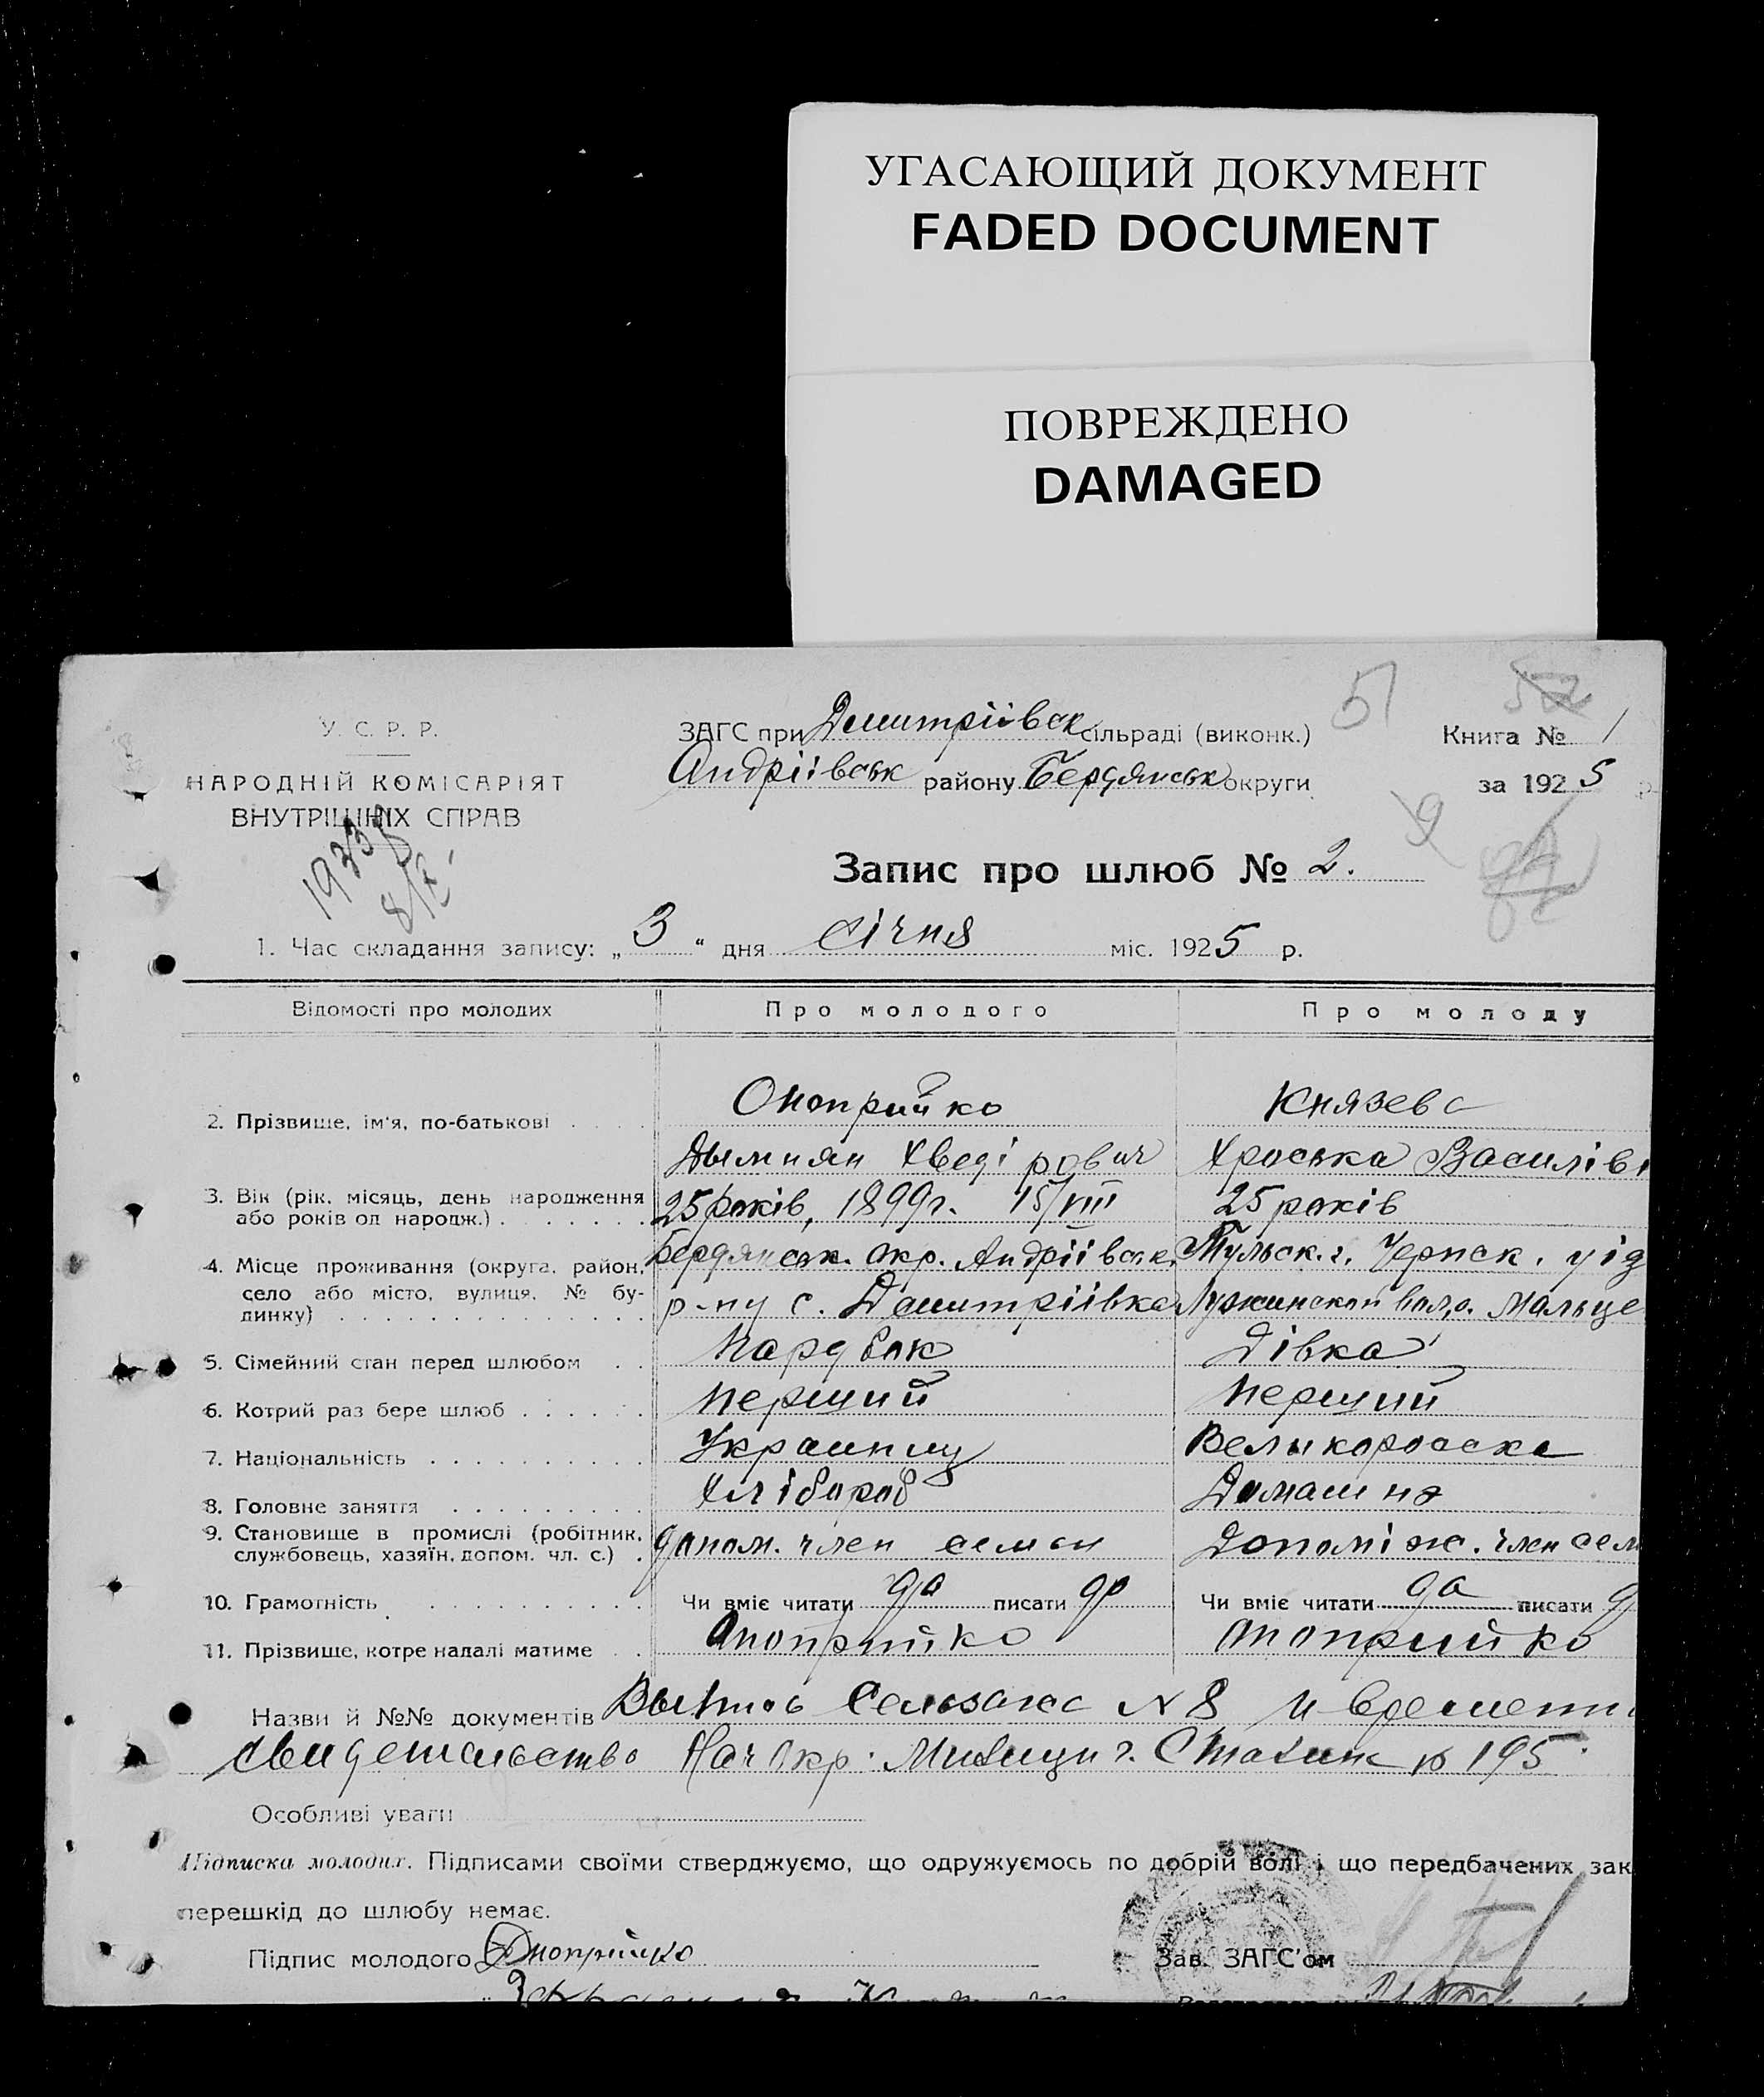 УГАСАЮЩИЙ ДОКУМЕНТ
FADED DOCUMENT
ПОВРЕЖДЕНО
DAMAGED
51 52
У. С. Р. Р.
НАРОДНІЙ КОМІСАРІЯТ
ВНУТРІШНІХ СПРАВ
ЗАГС при Дмитріівськ сільраді (виконк.)
Андріівськ району Бердянськ округи
Книга № 1
за 1925 р
Запис про шлюб № 2.
1. Час складання запису: „3“ дня січня міс. 1925 р.
Відомості про молодих Про молодого Про молоду
2. Прізвище, ім'я, по-батькові Оноприйко Князева
Дымнян Хведірович Хроська Василів
3. Вік (рік, місяць, день народження або років од народж.) 25 років, 1899 г. 15/VIII 25 років
4. Місце проживання (округа, район, Бердянськ. окр. Андріівськ. Тульск. г. Черпск. уід
село або місто, вулиця, № будинку) р-ну с. Дмитріівка волд. Мальце
5. Сімейний стан перед шлюбом Парубок Дівка
6. Котрий раз бере шлюб Перший Перший
7. Національність Украинец Великоросска
8. Головне заняття Хлібороб Домашня
9. Становище в промислі (робітник, службовець, хазяїн, допом. чл. с.) допом. член семьи Допоміж. член сем
10. Грамотність Чи вміє читати да писати да Чи вміє читати да писати д
11. Прізвище, котре надалі матиме Оноприйко Оноприйко
Назви й №№ документів № 8 и временн
свидетельство Нач Окр. Милиции г. Сталин № 195
Особливі уваги
Підписка молодих. Підписами своїми стверджуємо, що одружуємось по добрій волі і що передбачених зак
перешкід до шлюбу немає.
Підпис молодого Оноприйко Зав. ЗАГС'ом